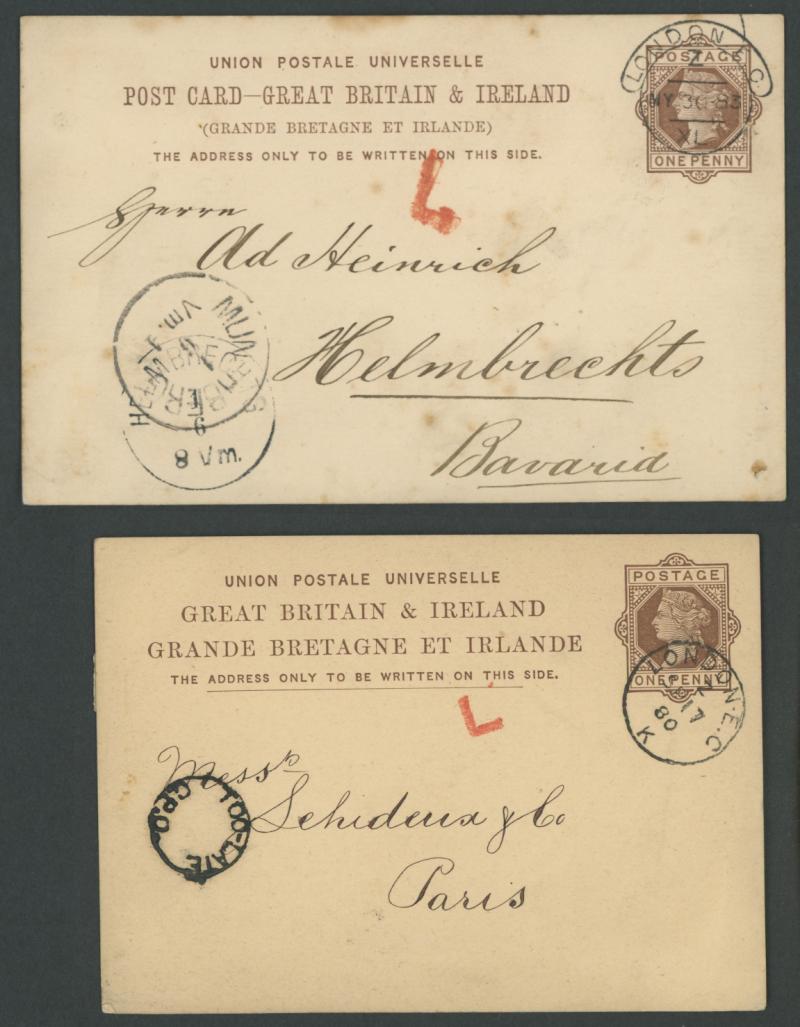 UNION POSTALE UNIVERSELLE
POST CARD—GREAT BRITAIN & IRELAND
(GRANDE BRETAGNE ET IRLANDE)
THE ADDRESS ONLY TO BE WRITTEN ON THIS SIDE.
POSTAGE
ONE PENNY
LONDON E.C
Z
MY 30 83
XL
L
Herrn
Ad Heinrich
Helmbrechts
Bavaria
MUENCHBERG
8 Vm.
UNION POSTALE UNIVERSELLE
GREAT BRITAIN & IRELAND
GRANDE BRETAGNE ET IRLANDE
THE ADDRESS ONLY TO BE WRITTEN ON THIS SIDE.
POSTAGE
ONE PENNY
LONDON·E.C
17
80
K
L
Messrs
Schideux & Co
Paris
TOO-LATE
G.P.O.